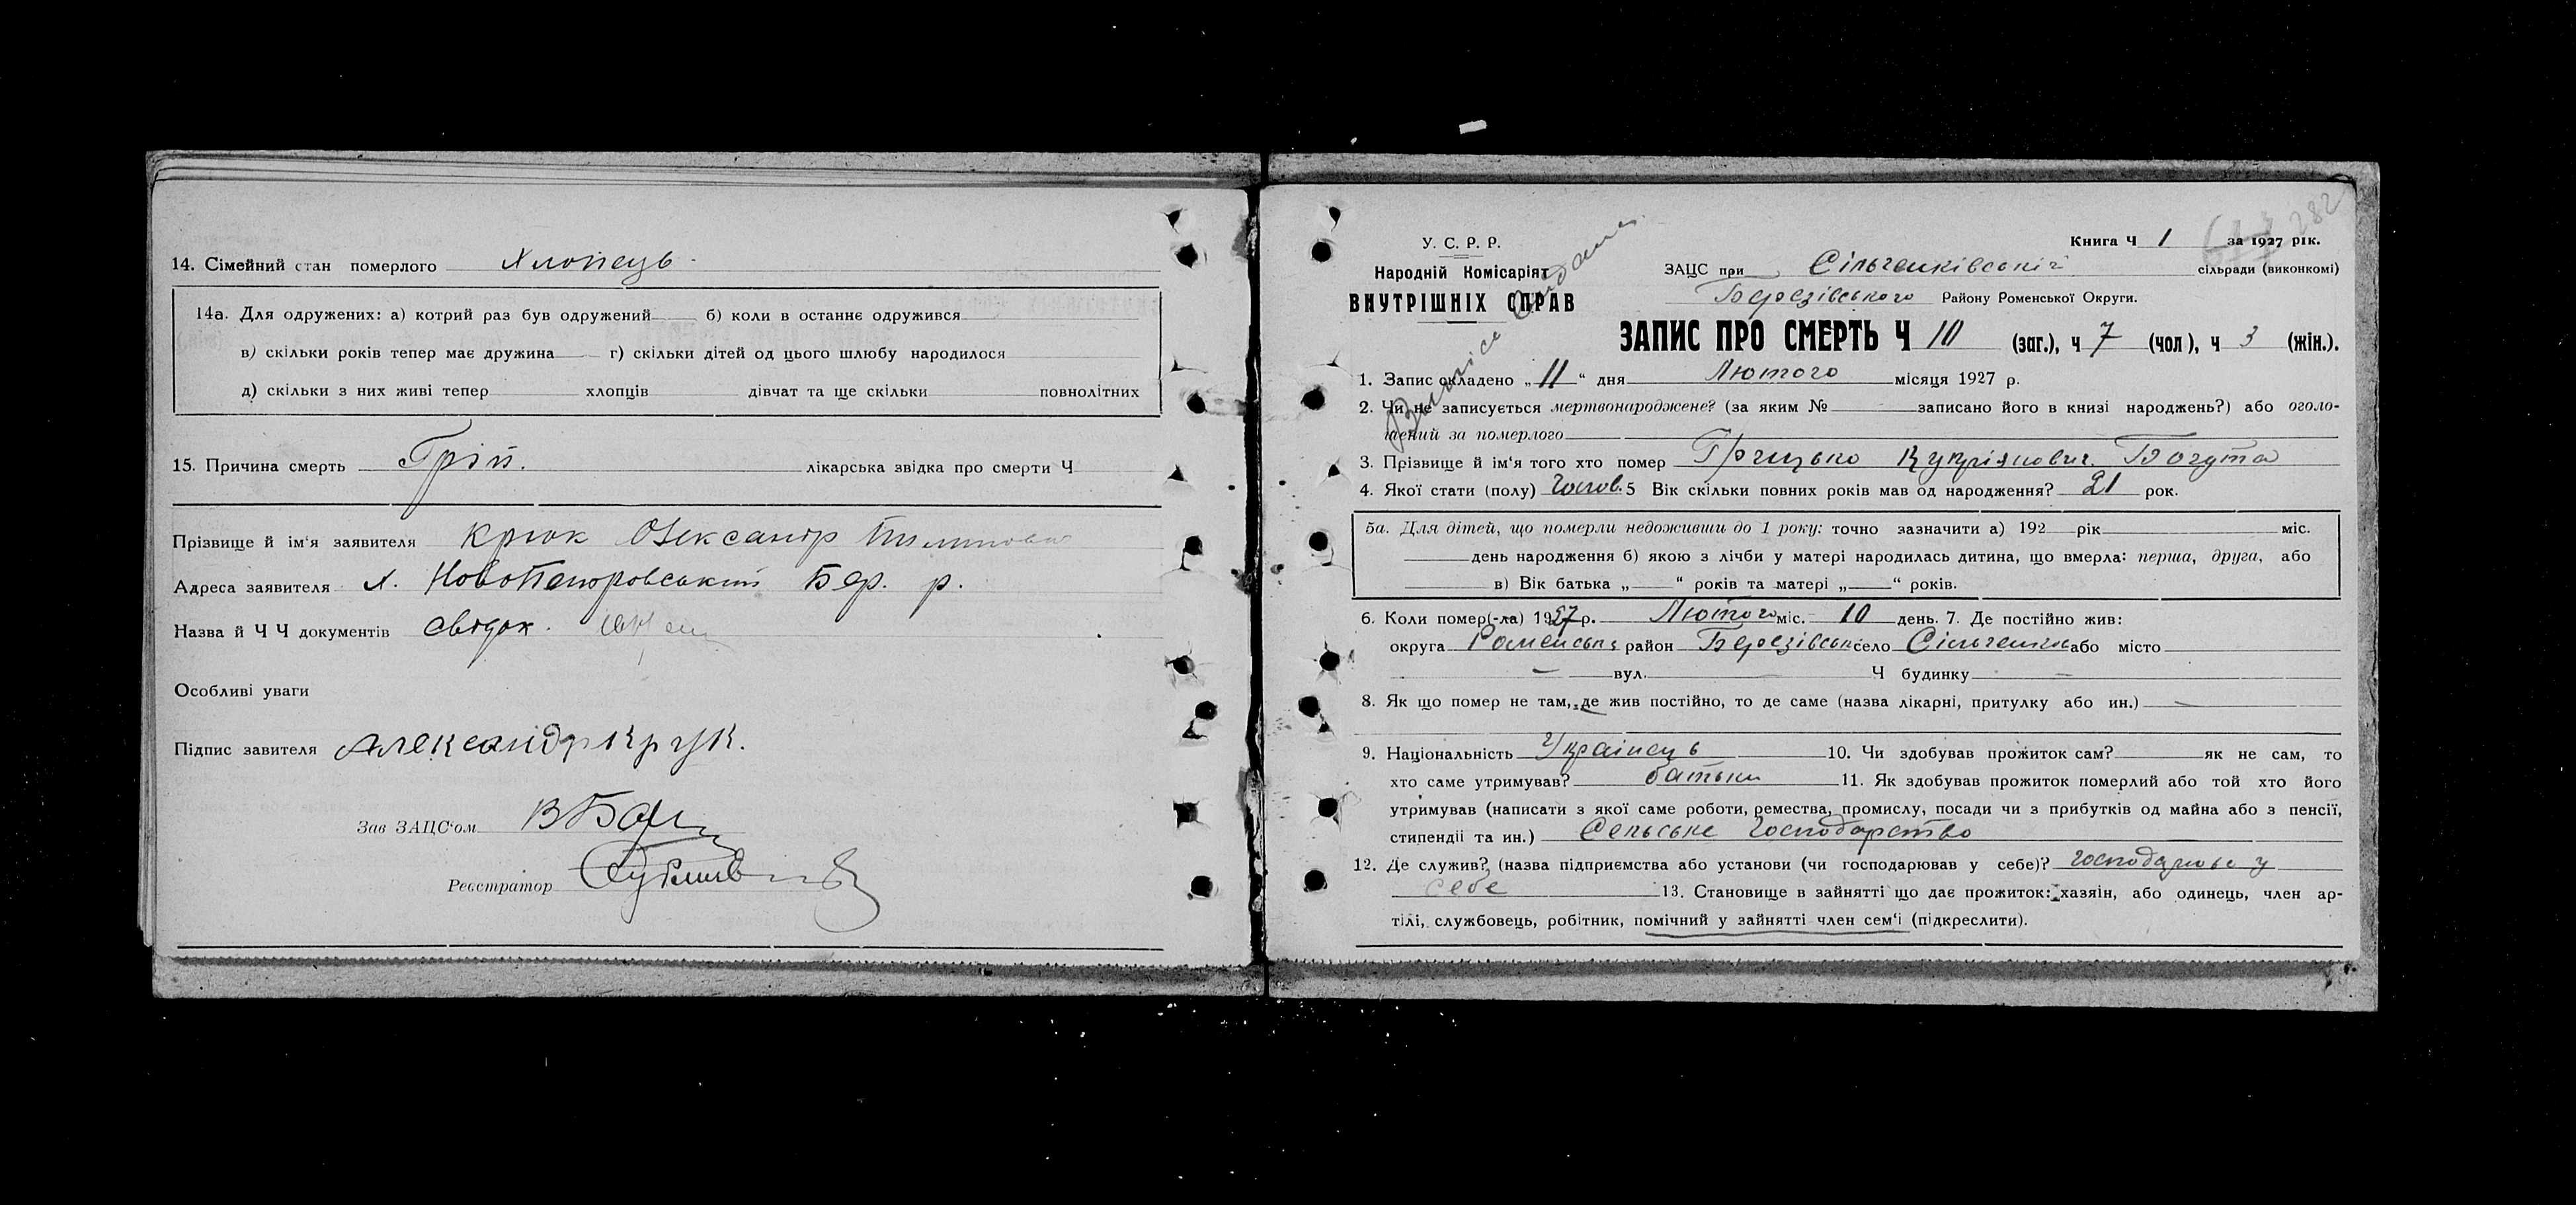 14. Сімейний стан померлого Хлопець
14а. Для одружених: а) котрий раз був одружений б) коли в останнє одружився
в) скільки років тепер має дружина г) скільки дітей од цього шлюбу народилося
д) скільки з них живі тепер хлопців дівчат та ще скільки повнолітних
15. Причина смерть Гріп. лікарська звідка про смерти Ч
Прізвище й ім'я заявителя Крюк Олександр
Адреса заявителя х. НовоПетровський Бер. р.
Назва й Ч Ч документів свідок.
Особливі уваги
Підпис завителя Александр Крук.
Зав ЗАЦС'ом
Реєстратор
282
У. С. Р. Р.
Народній Комісаріят
ВНУТРІШНІХ СПРАВ
Виписс видана
Книга Ч 1 за 1927 рік.
ЗАЦС при Сільченківській сільради (виконкомі)
Березівського Району Роменської Округи.
ЗАПИС ПРО СМЕРТЬ Ч 10 (заг.), ч 7 (чол), ч 3 (жін.).
1. Запис складено „11“ дня Лютого місяця 1927 р.
2. Чи не записується мертвонароджене? (за яким № записано його в книзі народжень?) або оголо-
шений за померлого
3. Прізвище й ім'я того хто помер Грицько Купріянович Богута
4. Якої стати (полу) Чолов. 5 Вік скільки повних років мав од народження? 21 рок.
5а. Для дітей, що померли недоживши до 1 року: точно зазначити а) 192 рік міс.
день народження б) якою з лічби у матері народилась дитина, що вмерла: перша, друга, або
в) Вік батька „ “ років та матері „ “ років.
6. Коли помер(-ла) 1927 р. Лютого міс. 10 день. 7. Де постійно жив:
округа Роменськ район Березівськ село Сільченков або місто
вул. Ч будинку
8. Як що помер не там, де жив постійно, то де саме (назва лікарні, притулку або ин.)
9. Національність Українець 10. Чи здобував прожиток сам? як не сам, то
хто саме утримував? батьки 11. Як здобував прожиток померлий або той хто його
утримував (написати з якої саме роботи, ремества, промислу, посади чи з прибутків од майна або з пенсії,
стипендії та ин.) Сельське Господарство
12. Де служив? (назва підприємства або установи (чи господарював у себе)? господарював у
себе 13. Становище в зайнятті що дає прожиток: хазяін, або одинець, член ар-
тілі, службовець, робітник, помічний у зайнятті член сем'ї (підкреслити).